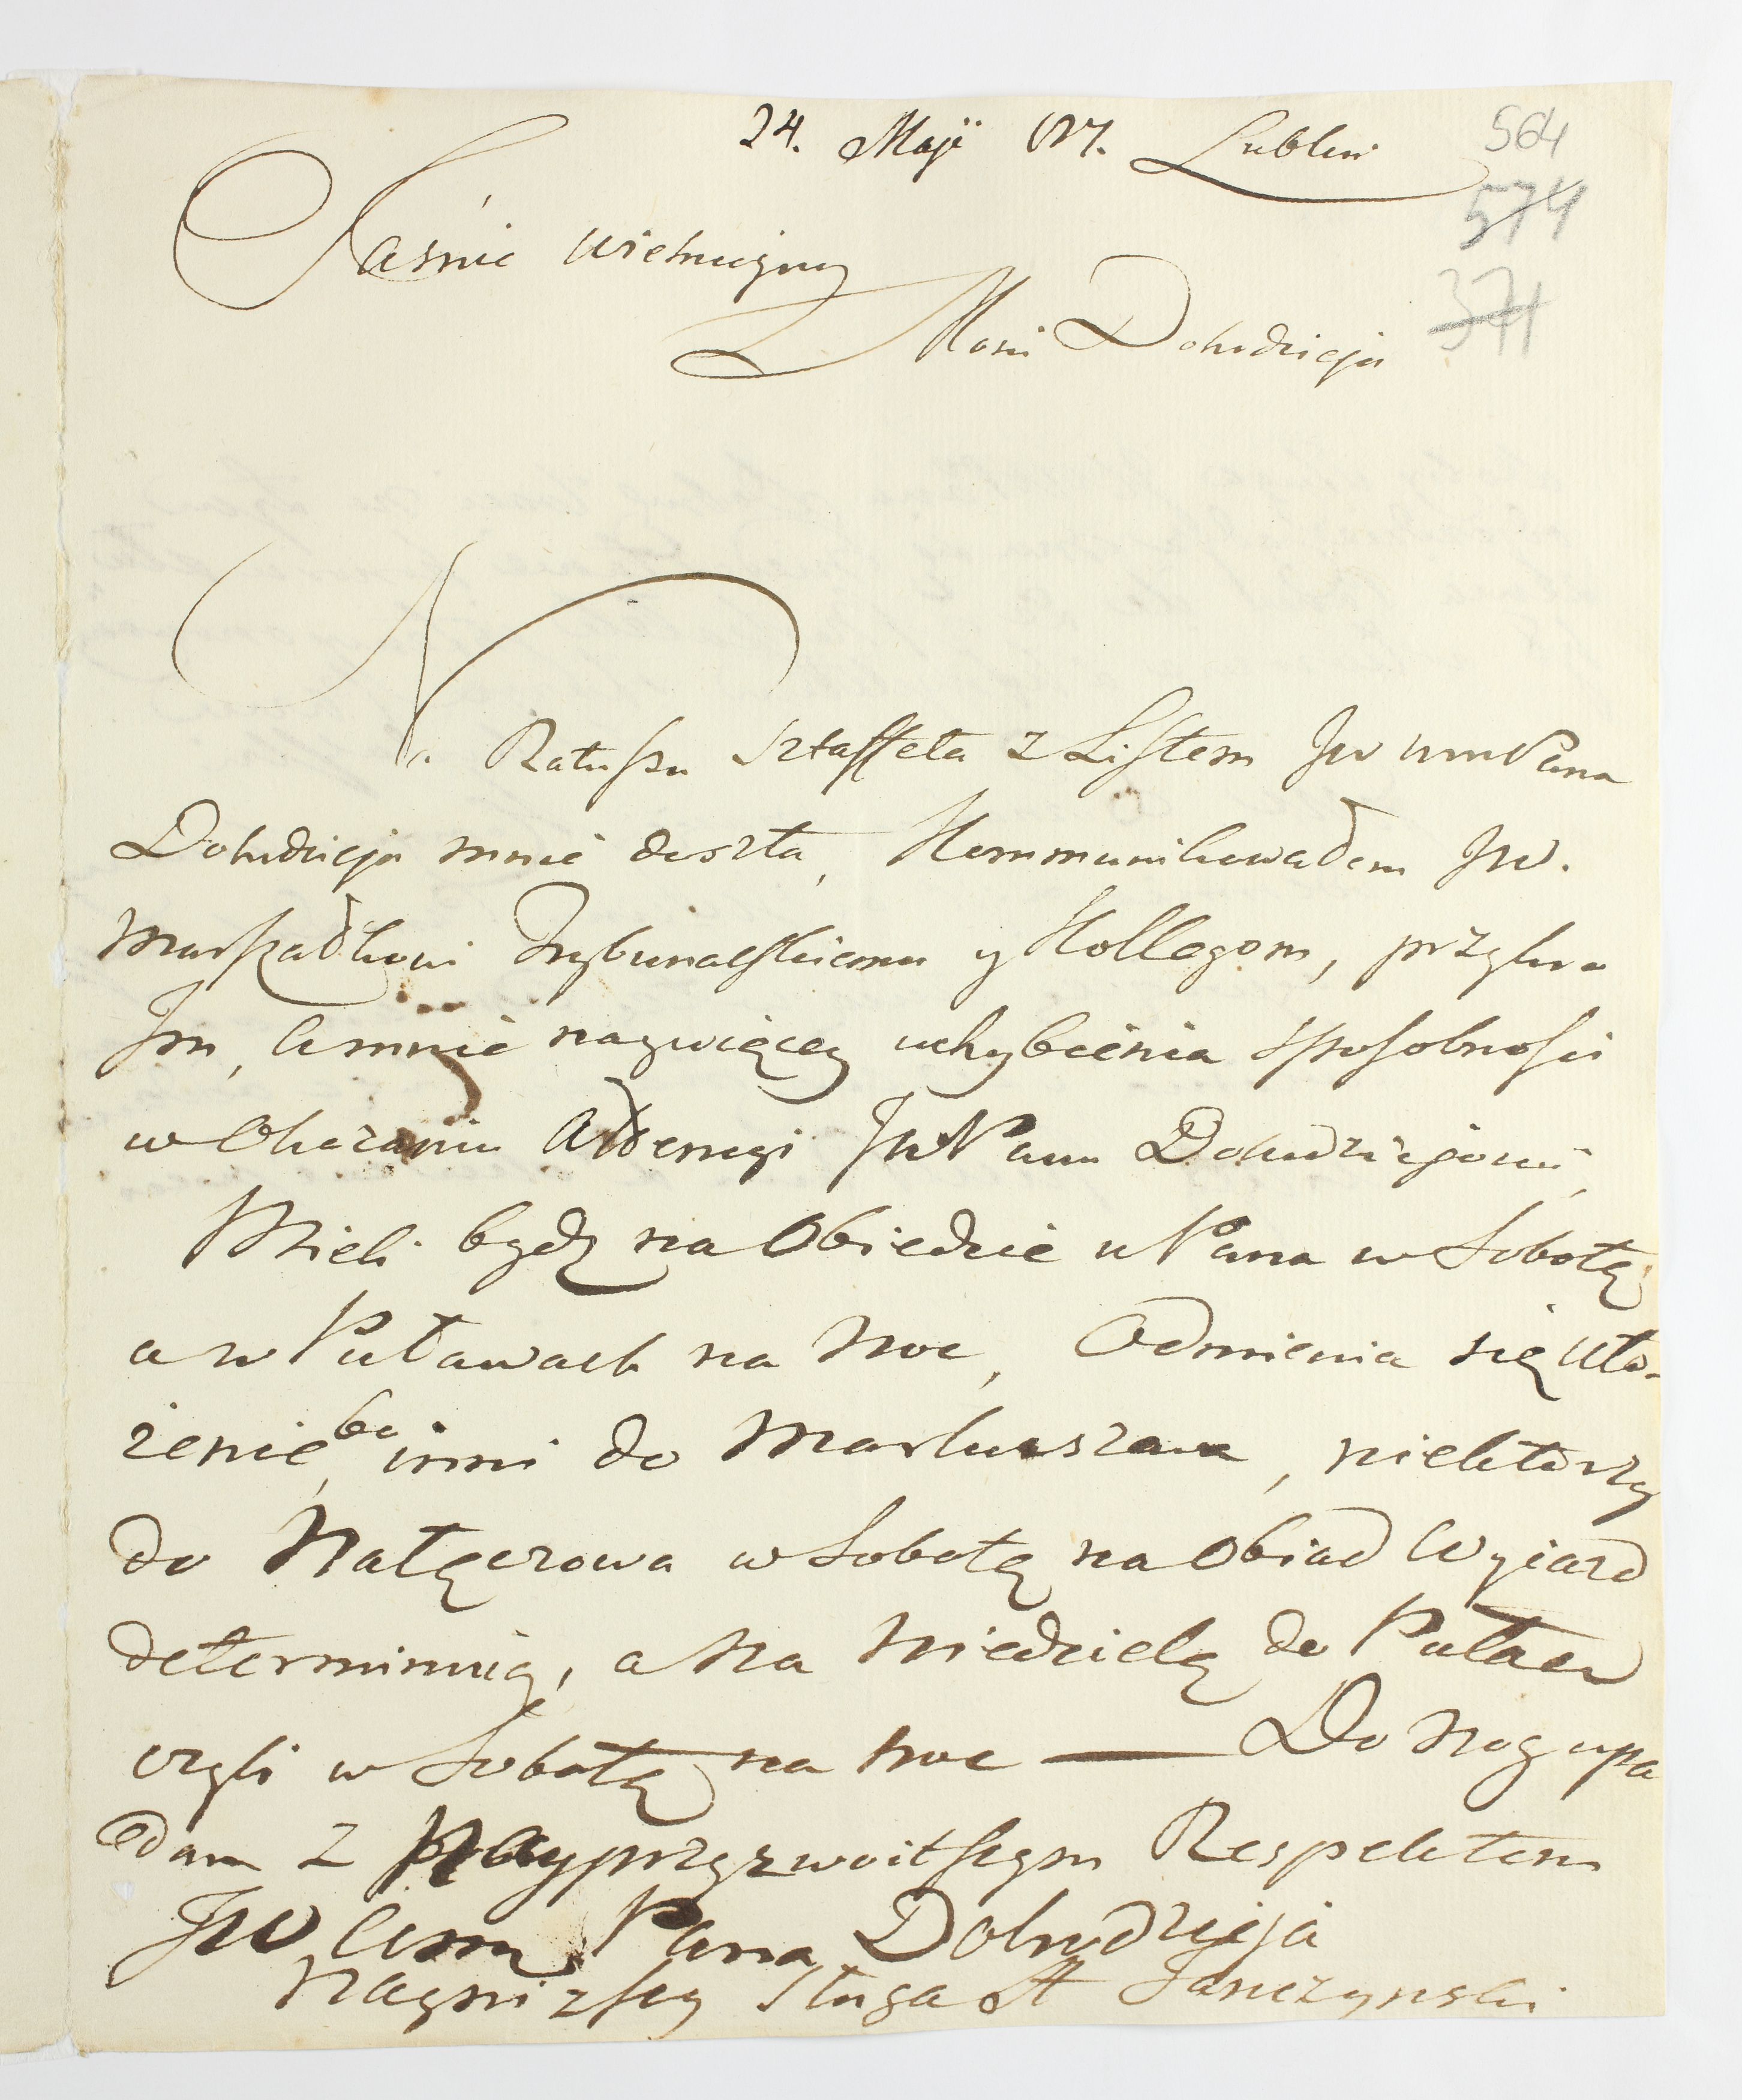 24. Maji Lublin
564
574
371
Jaśnie wielmożny
Mości Dobrodzieju
Na Ratuszu sztaffeta z Listem Jw wm Pana
Dobrodzieja mnie doszła, Kommunikowałem Jw.
Marszałkowi Trybunalskiemu y Kollegom, przykro
Im, a mnie naywięcey uchybienia sposobności
w Okazaniu Attencyi Jw Panu Dobrodziejowi,
Mieli bydz na Obiedzie u Pana w Sobotę
a w Puławach na noc, Odmienia się Uło-
żenie, bo inni do Markuszowa, niektorzy
do Nałęczowa w Sobotę na Obiad Wyiazd
determinuią, a na Niedzielę do Puław
czyli w Sobotę na noc — Do Nog upa
dam z Nayprzyzwoitszym Respektem
Jw wm Pana Dobrodzieja
Nayniższy Sługa A Janczynski